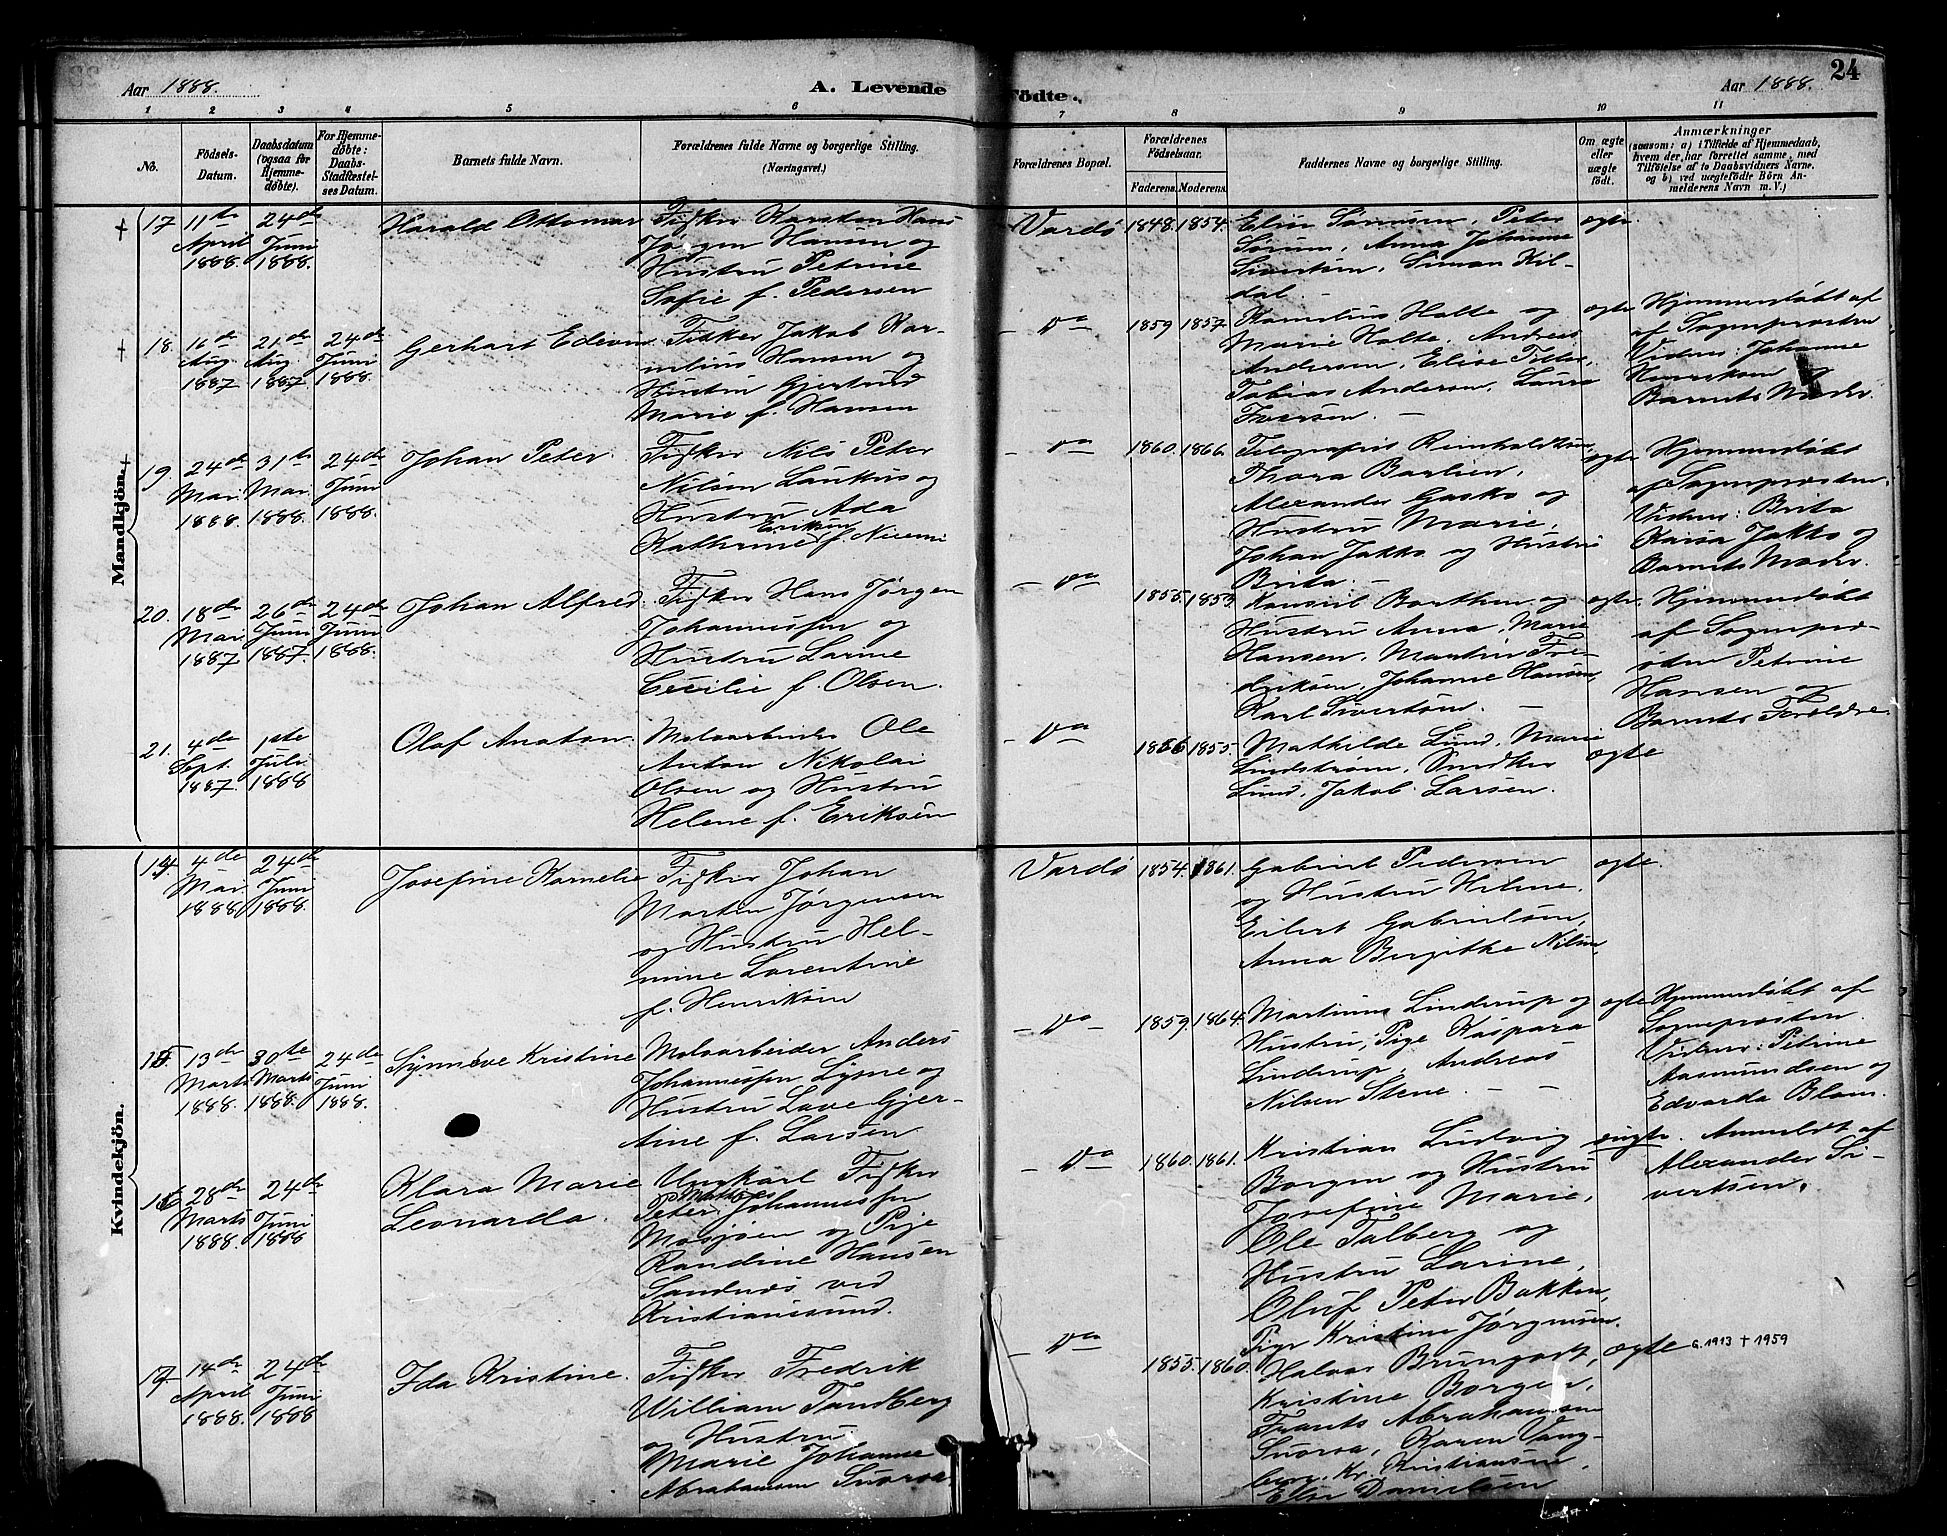 Aar 1888.
A. Levende
Fødte.
Aar 1888.
24
1 2 3 4 5 6 7 8 9 10 11
No.
Fødsels-
Datum.
Daabsdatum
(ogsaa for
Hjemme-
døbte).
For Hjemme-
døbte:
Daabs-
Stadfæstel-
ses Datum.
Barnets fulde Navn.
Forældrenes fulde Navne og borgerlige Stilling.
(Næringsvei.)
Forældrenes Bopæl.
Forældrenes
Fødselsaar.
Faderens. Moderens.
Faddernes Navne og borgerlige Stilling.
Om ægte
eller
uægte
født.
Anmærkninger
(saasom: a) i Tilfælde af Hjemmedaab,
hvem der har forrettet samme, med
Tilføielse af to Daabsvidners Navne.
og b) ved uægtefødte Börn An-
melderens Navn m. V.)
Mandkjön.
17
11te
April
1888.
24de
Juni
1888.
Harald Ottomar
Fisker Karsten Hans
Jørgen Hansen og
Hustru Petrine
Sofie f. Pedersen
Vardö
1848. 1854.
Elise Sørensen, Peter
Sørum, Anna Johanne
Sivertsen, Simon Kil-
dal.
ægte
18.
16de
Aug.
1887
21de
Aug.
1887
24de
Juni
1888.
Gerhart Edevin
Fisker Jakob Kor-
nelius Hansen og
Hustru Gjertrud
Marie f. Hansen
- Do
1859 1857.
Kornelius Holte og
Marie Holte, Andreas
Andersen, Elise
Tobias Andersen, Laura
Iversen. -
ægte
Hjemmedøbt af
af Sognepresten
Vidner: Johanne
Henriksen og
Barnets Moder.
19.
24de
Mar.
1888.
31te
Mar.
1888.
24de
Juni
1888.
Johan Peter
Fisker Nils Peter
Nilsen Laukus og
Hustru Ada
Eriksen
Kathrine f. Niemi
- Do
1860. 1866.
Telegrafist Reinholdtsen,
Thora Barlien,
Alexander Gasko og
Hustru Marie,
Johan Jakko og Hustru
Brita. -
ægte
Hjemmedøbt
af Sognepresten.
Vidner: Brita
Kaisa Jakko og
Barnets Moder.
20.
18de
Mar.
1887
26de
Juni
1887.
24de
Juni
1888.
Johan Alfred
Fisker Hans Jørgen
Johannessen og
Hustru Larine
Cecilie f. Olsen.
- Do
1855. 1853
Konsul Barthen og
Hustru Anna, Marie
Hansen, Martin Fre-
driksen, Johanne Hansen,
Karl Sivertsen. -
ægte.
Hjemmedøbt
af Sognepre-
sten Petrine
Hansen og
Barnets Forældre
21.
4de
Sept.
1887.
1ste
Juli
1888
Olaf Anaton.
Moloarbeider Ole
Anton Nikolai
Olsen og Hustru
Helene f. Eriksen
- Do
1856 1855.
Mathilde Lund, Marie
Lindstrøm, Snedker
Lund, Jakob Larsen.
ægte
Kvindekjön.
14
4de
Mar.
1888
24de
Juni
1888.
Josefine Kornelie
Fisker Johan
Morten Jørgensen
og Hustru Hel-
mine Lorentine
f. Henriksen
Vardö
1854. 1861.
Gabriel Pedersen
og Hustru Helene.
Eilert Gabrielsen,
Anna Birgitte Nilsen,
ægte.
15.
13de
Marts
1888.
30te
Marts
1888.
24de
Juni
1888.
Synneve Kristine
Moloarbeider Anders
Johannessen Lysne og
Hustru Lave Gjer-
tine f. Larsen
- Do -
1859. 1864.
Martinus Linderup og
Hustru, Pige Kaspara
Linderup, Andreas
Nilsen Stene - -
ægte
Hjemmedøbt af
Sognepresten.
Vidner: Petrine
Aasmundsen og
Edvarda Blom.
16
28de
Marts
1888.
24de
Juni
1888
Klara Marie
Leonarda.
Ungkarl Fisker
Mathias
Peter Johannessen
Mosjøen og Pige
Randine Hansen
Sandnes ved
Kristiansund.
- Do
1860. 1861.
Kristian Ludvig
Borgen og Hustru
Josefine Marie,
Ole Talberg og
Hustru Larine,
Oluf Peter Bakken,
Pige Kristine Jørgensen.
uægte.
Anmeldt af
Alexander Si-
vertsen.
17
14de
April
1888.
24de
Juni
1888
Ida Kristine.
Fisker Fredrik
William Tandberg
og Hustru
Marie Johanne
Abrahamsen Suorsa
- Do
1855. 1860.
Halvor Brungodt,
Kristine Borgen,
Frants Abrahamsen
Suorsa, Karen Vang-
berg, Kr. Kristiansen,
Else Danielsen
ægte
G. 1913 + 1959